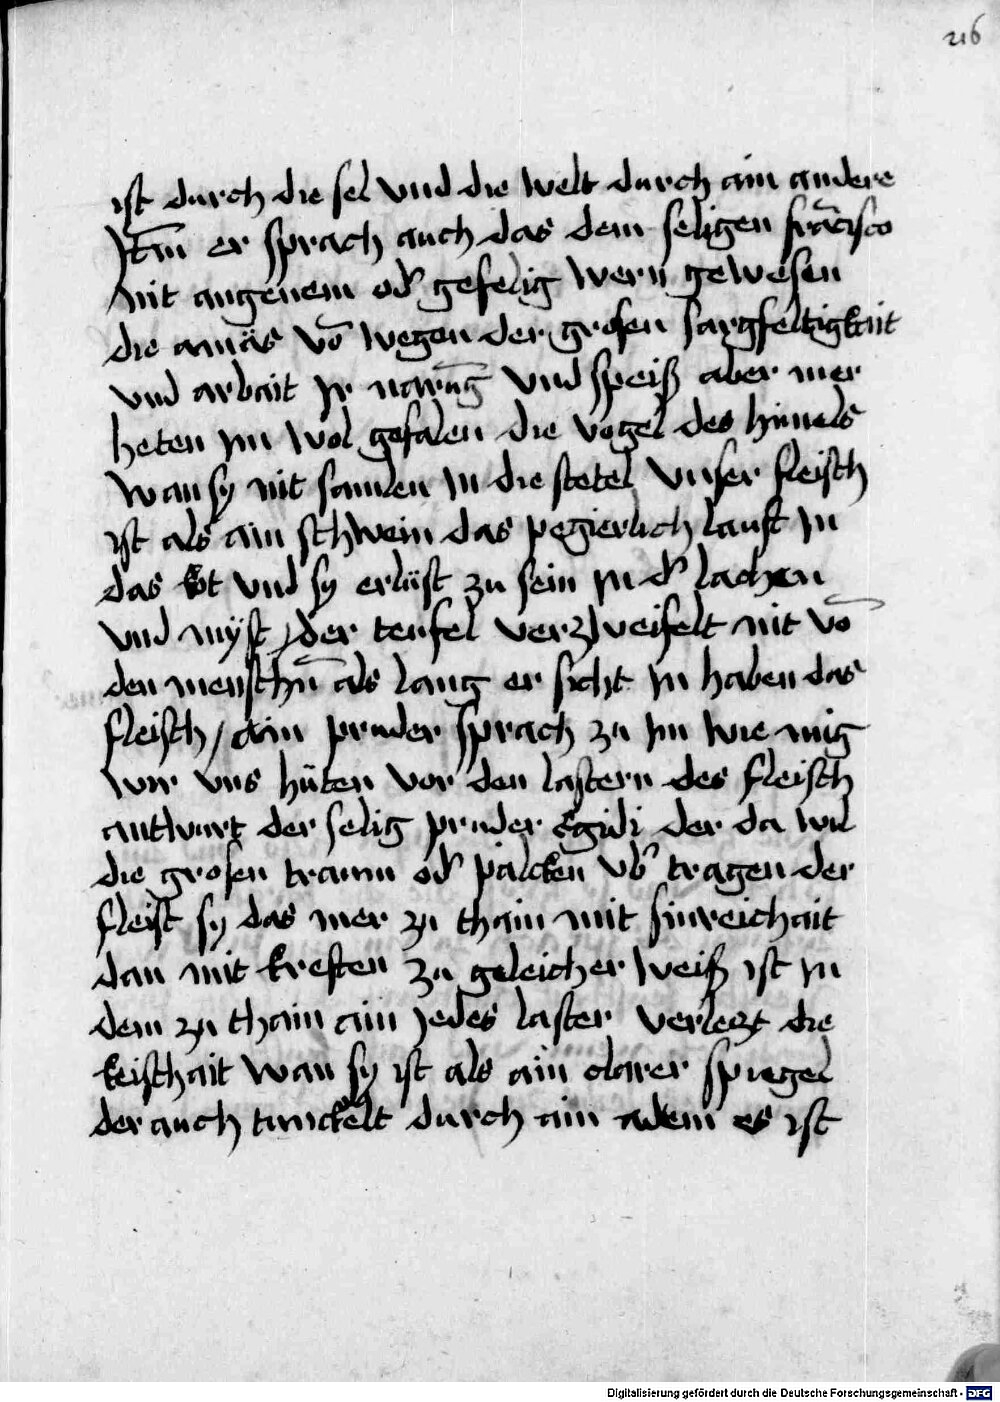 216
ist durch die sel vnd die welt durch ain andere
Jtm̄ er sprach auch das dem seligen frācisco
nit angenem od̕ gefelig wern gewesen
die amäs vō wegen der grosen sargfeltigkait
vnd arbait jr narūg vnd speiß aber mer
heten jm wol gefalen die vogel des himels
wan sy nit samlen jn die stetel vnser fleisch
ist als ain schwein das pegierlich lauft jn
das kot vnd sy erlüst zu sein jn d̕ lachen
vnd myst / der teufel verzweifelt nit vō
den menschn̄ als lang er sicht jn haben das
fleisch / ain pruder sprach zu jm wie mig
wir vns hüten vor den lastern des fleisch
antwurt der selig pruder Egidi der da wil
die grosen traum od̕ palcken vb̕ tragen der
fleist sy das mer zu thain mit sinreichait
dan mit kreften zu geleicher weiß ist jn
dem zu thain ain jedes laster verlezt die
keischait wan sy ist als ain clarer spiegel
der auch tunckelt durch ain adem es ist
Digitalisierung gefördert durch die Deutsche Forschungsgemeinschaft - DFG